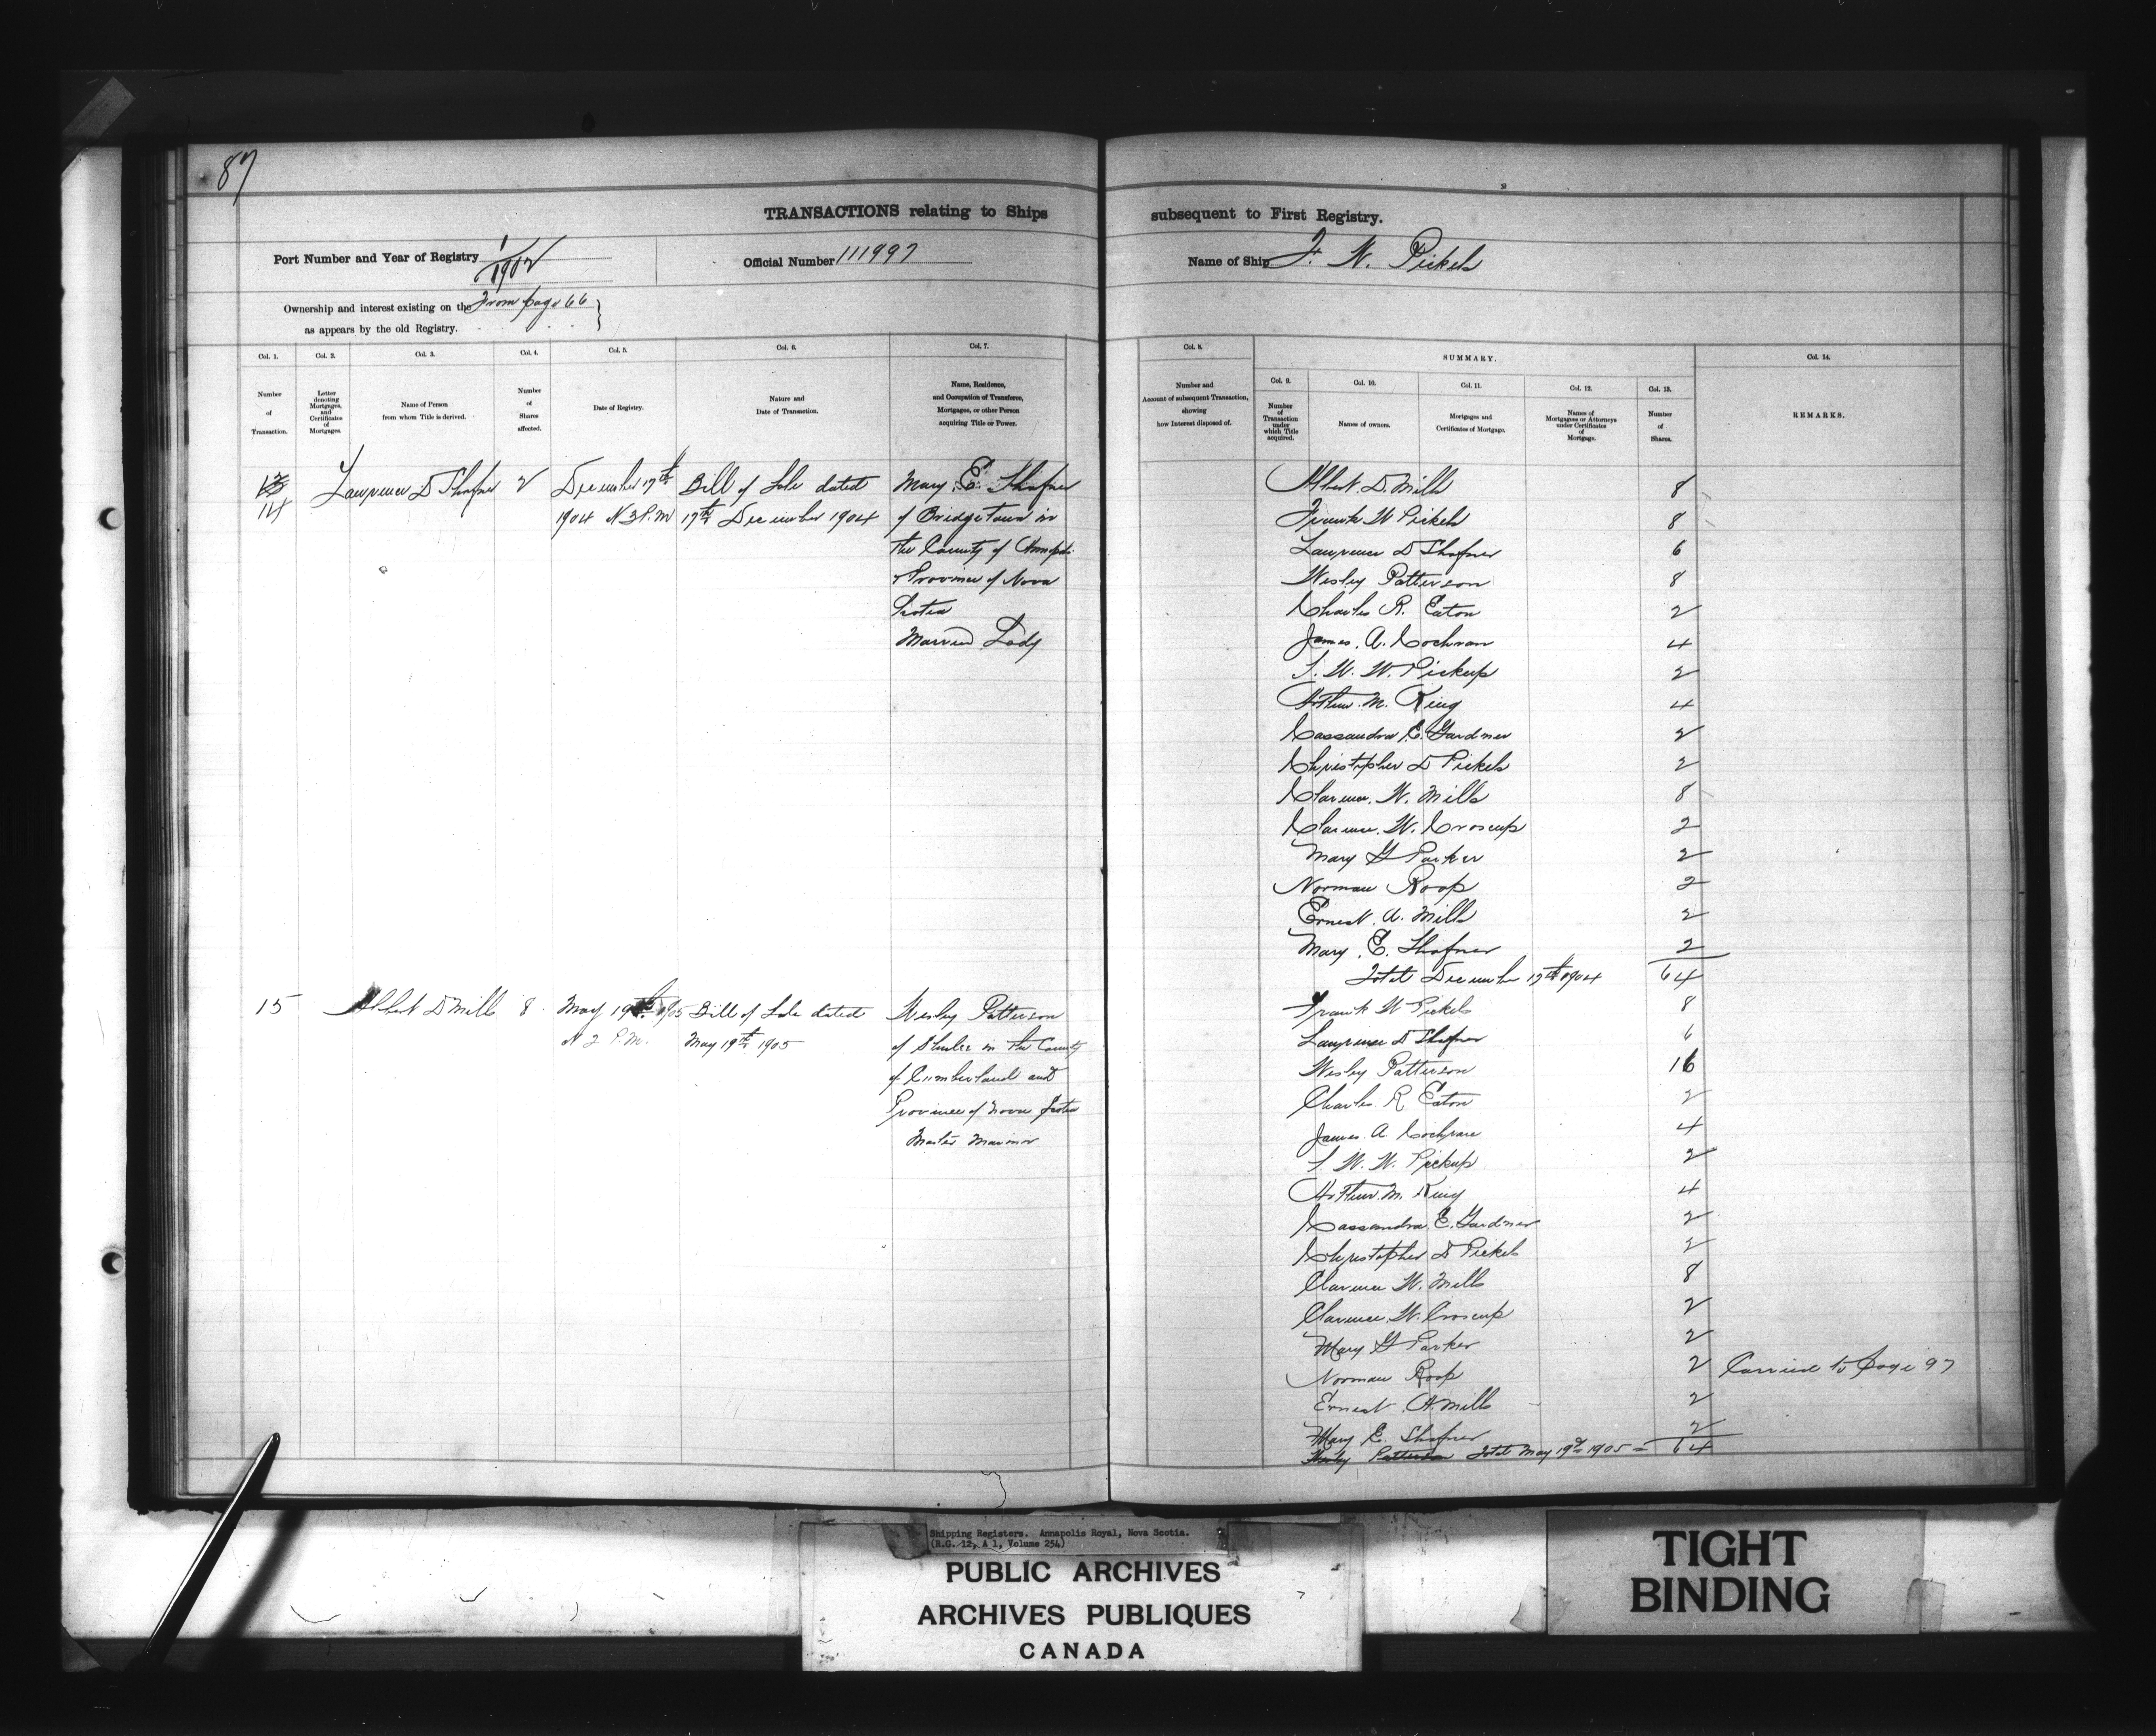 87
TRANSACTIONS relating to Ships subsequent to First Registry.
Port Number and Year of Registry 1/1902 Official Number 111997 Name of Ship F. W. Pickels
Ownership and interest existing on the From page 66
as appears by the old Registry.
Col. 1. Col. 2. Col. 3. Col. 4. Col. 5. Col. 6. Col. 7. Col. 8. SUMMARY. Col. 14.
Col. 9. Col. 10. Col. 11. Col. 12. Col. 13.
Number of Transaction.
Letter denoting Mortgages, and Certificates of Mortgages.
Name of Person from whom Title is derived.
Number of Shares affected.
Date of Registry.
Nature and Date of Transaction.
Name, Residence, and Occupation of Transferee, Mortgagee, or other Person acquiring Title or Power.
Number and Amount of subsequent Transaction, showing how Interest disposed of.
Number of Transaction under which Title acquired.
Names of owners.
Mortgages and Certificates of Mortgage.
Names of Mortgagees or Attorneys under Certificates of Mortgage.
Number of Shares.
REMARKS.
13
14 Lawrence D Shafner 2 December 17th Bill of Sale dated Mary E. Shafner
1904 at 3 P.M 17th December 1904 of Bridgetown in
the County of Annapolis
Province of Nova
Scotia
Married Lady
Albert D. Mills 8
Frank W Pickels 8
Lawrence D Shafner 6
Wesley Patterson 8
Charles R. Eaton 2
James. A. Cochran 4
S. W. W. Pickup 2
Arthur. M. King 4
Cassandra E. Gardner 2
Christopher D Pickels 2
Clarence. W. Mills 8
Clarence. W. Croscup 2
Mary G Parker 2
Norman Roop 2
Ernest. A. Mills 2
Mary. E. Shafner 2
Total December 17th 1904 64
15 Albert D Mills 8 May 19th 1905 Bill of Sale dated Wesley Patterson
at 2 P.M. May 19th 1905 of Shulee in the County
of Cumberland and
Province of Nova Scotia
Master Mariner
Frank W Pickels 8
Lawrence D Shafner 6
Wesley Patterson 16
Charles R Eaton 2
James. A Cochran 4
S. W. W. Pickup 2
Arthur. M. King 4
Cassandra. E. Gardner 2
Christopher D Pickels 2
Clarence W. Mills 8
Clarence. W. Croscup 2
Mary G Parker 2
Norman Roop 2 Carried to page 97
Ernest. A. Mills 2
Mary E. Shafner 2
Wesley Patterson Total May 19th 1905 = 64
Shipping Registers. Annapolis Royal, Nova Scotia.
(R.G. 12, A 1, Volume 254)
PUBLIC ARCHIVES
ARCHIVES PUBLIQUES
CANADA
TIGHT
BINDING